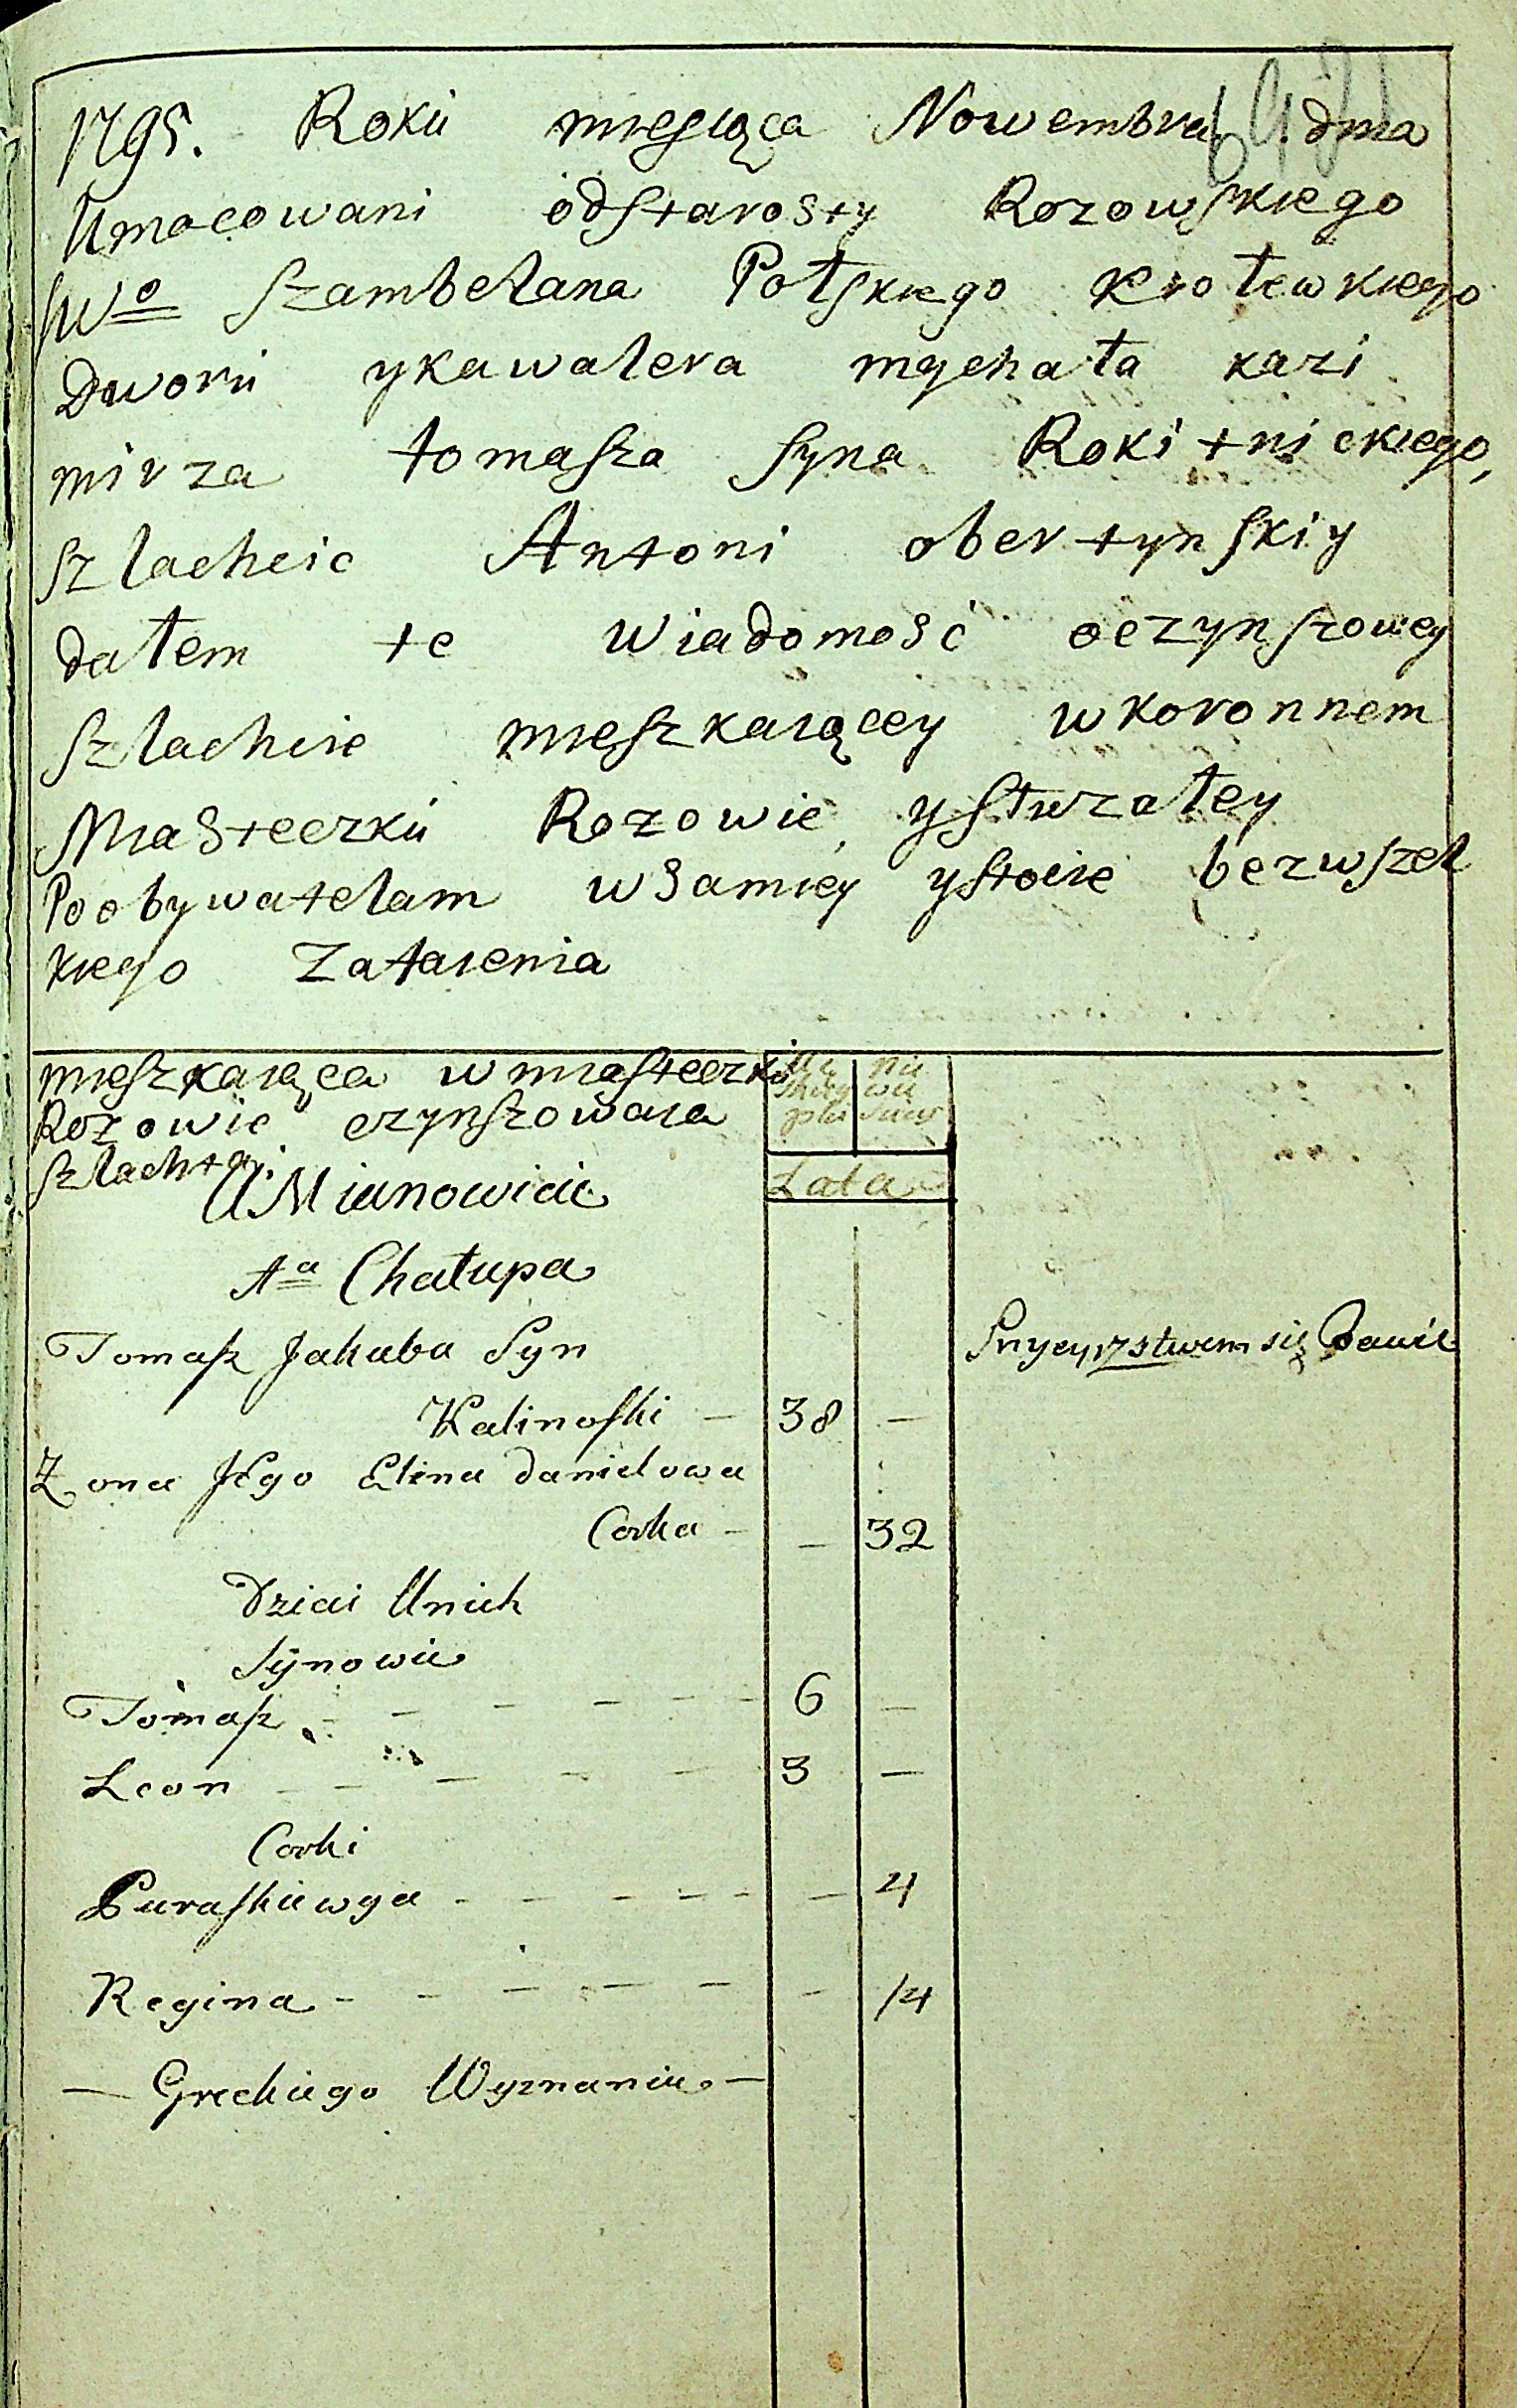 1795. Roku miesiąca Nowembra dnia
Umocowani odstarosty Rozowskiego
JWo szambelana Polskiego krolewkiego
Dworu ykawalera mychała kazi
mirza tomasza syna Rokitnickiego,
szlachcic Antoni obertynskiy
dałem te wiadomość oczynszowey
szlachcie mieszkaiącey wkoronnem
Miasteczku Rozowie,
Poobywatelam wsamiey ystocie bezwszel
kiego zataienia
mieszkaiąca wmiasteczku
Rozowie czynszowaia
szlachta.
Lata
A Mianowicie
1a Chałupa
Tomasz Jakuba Syn
się Bawił
Kalinoski — 38 —
Zona Jego Elina Daniełowa
Corka — — 32
Dzieci Unich
Synowie
Tomasz 6 —
Leon 3 —
Corki
Paraskiewya — 4
Regina — 14
— Greckiego Wyznania —